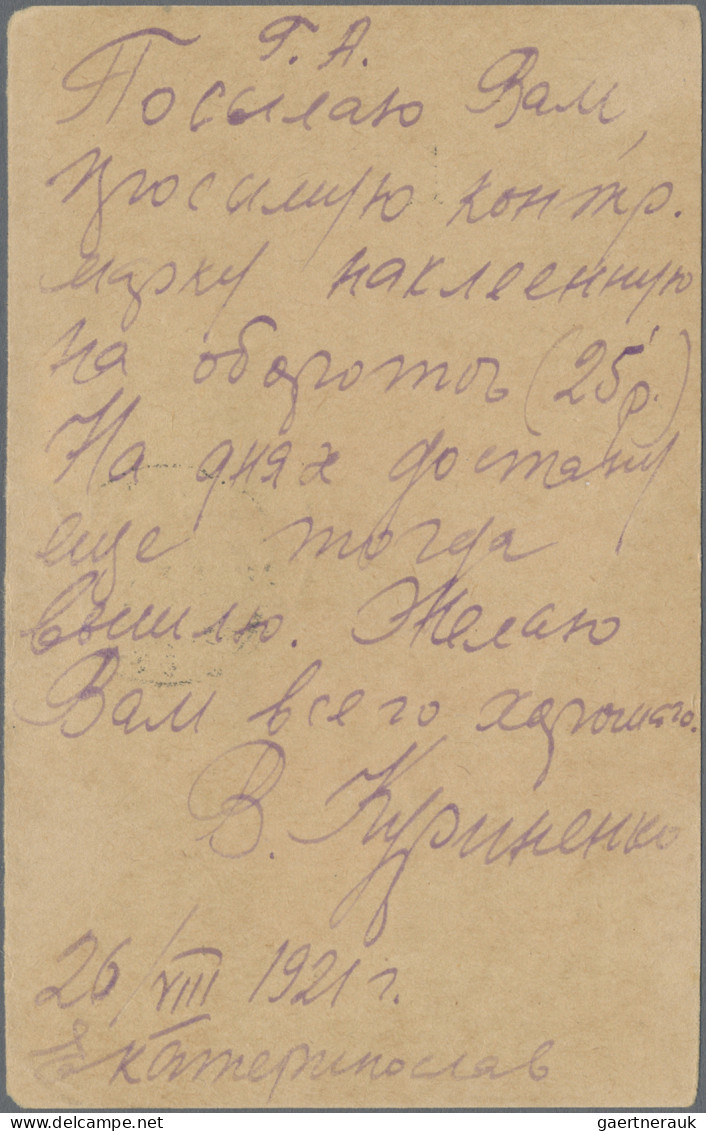 Г. А.
Посылаю Вам,
просимую контр.
марку наклеенную
на оборотѣ (25 р.)
На днях достану
еще тогда
вышлю. Желаю
Вам всего хорошаго.
В. Куриненко
26/VIII 1921 г.
Екатеринослав
gaertnerauk